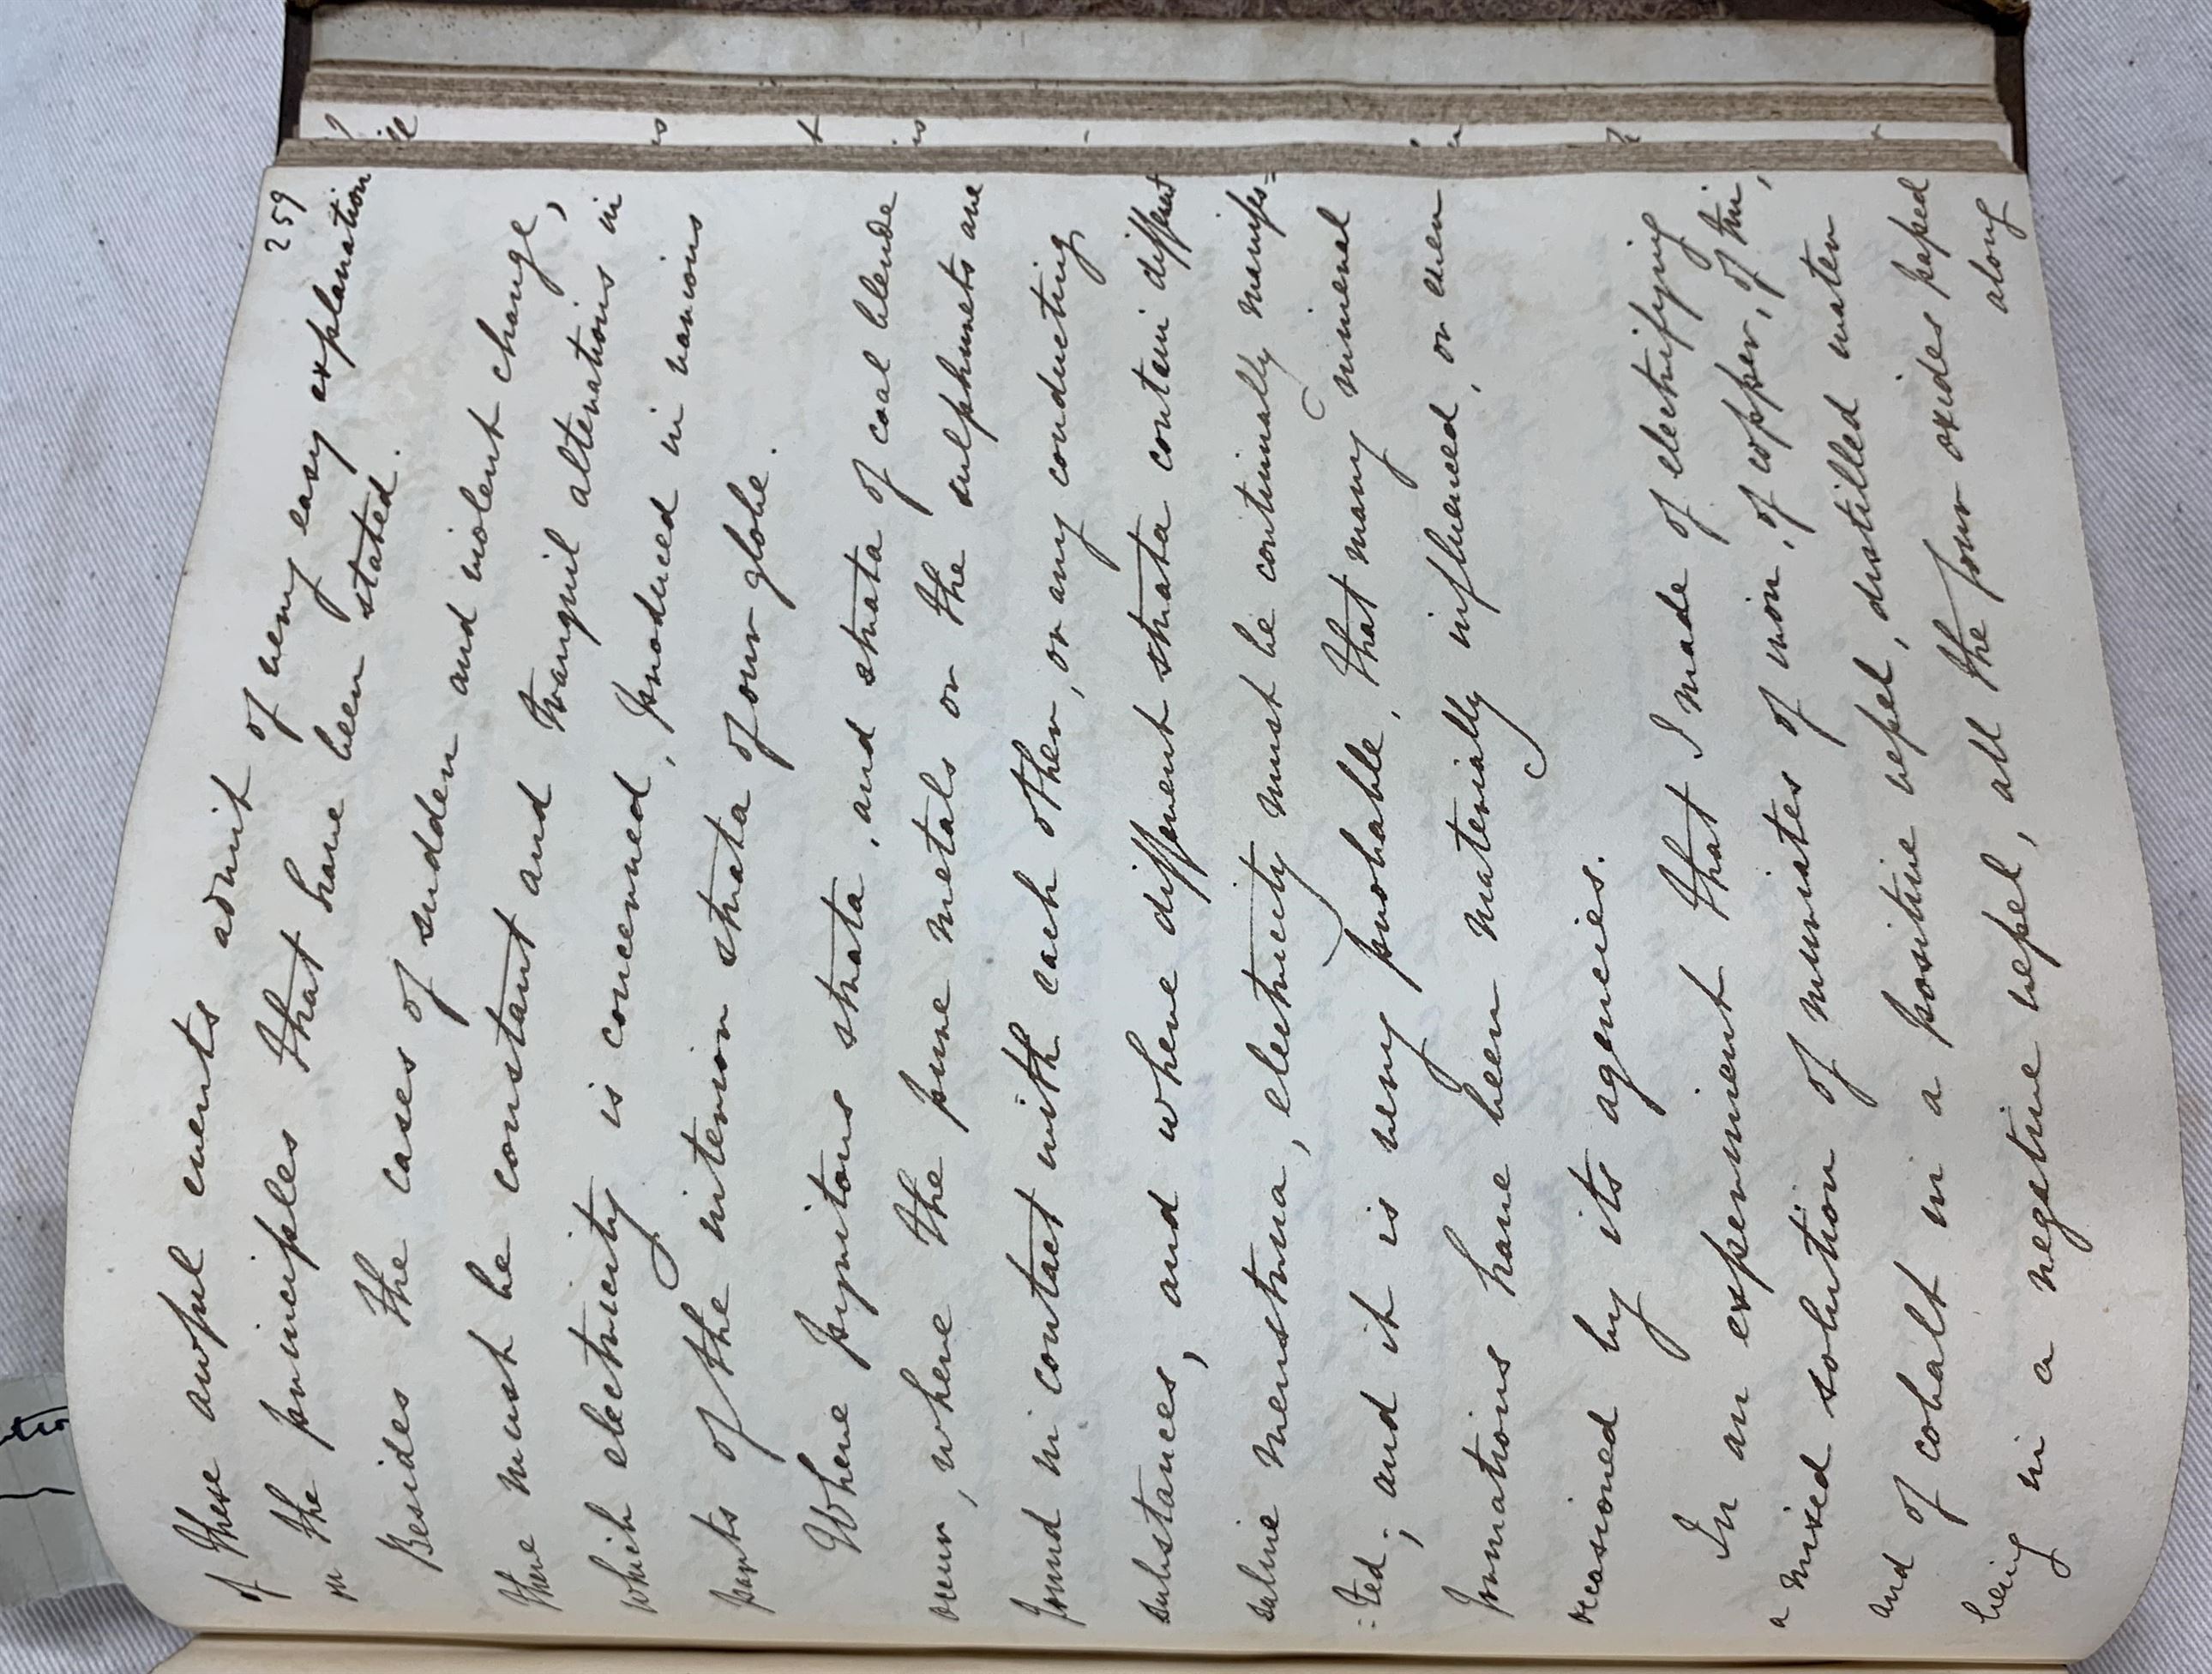 259
of these awful events admit of very easy explanation
on the principles that have been stated.
Besides the cases of sudden and violent change,
there must be constant and tranquil alterations in
which electricity is concerned, produced in various
parts of the interior strata of our globe.
Where pyritous strata, and strata of coal blende
occur, where the pure metals or the sulphurets are
found in contact with each other, or any conducting
substances, and where different strata contain different
saline menstrua, electricity must be continually manifes=
=ted; and it is very probable, that many mineral
formations have been materially influenced, or even
occasioned by its agencies.
In an experiment that I made of electrifying
a mixed solution of muriates of iron, of copper, of tin,
and of cobalt in a positive vessel, distilled water
being in a negative vessel, all the four oxides passed
along